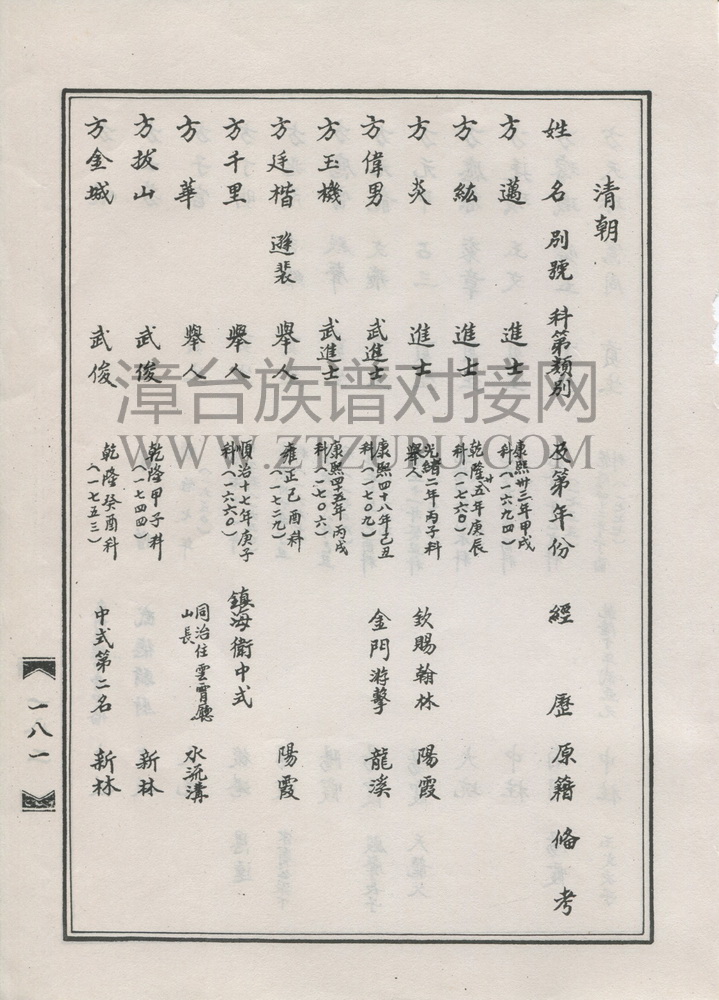 清朝
姓名 別號 科第類別 及第年份 經歷 原籍 俻考
方邁 進士 康熙卅三年甲戌科(一六九四)
方紘 進士 乾隆廿五年庚辰科(一七六○)
方炎 進士 光緒二年丙子科舉人 欽賜翰林 陽霞
方偉男 武進士 康熙四十八年己丑科(一七○九) 金門游擊 龍溪
方玉機 武進士 康熙四十五年丙戌科(一七○六)
方廷楷 遜裴 舉人 雍正己酉科(一七二九) 陽霞
方千里 舉人 順治十七年庚子科(一六六○) 鎮海衛中式
方華 舉人 同治住雲霄廳山長 水流溝
方拔山 武俊 乾隆甲子科(一七四四) 新林
方金城 武俊 乾隆癸酉科(一七五三) 中式第二名 新林
一八一
漳台族谱对接网
WWW.ZTZUPU.COM